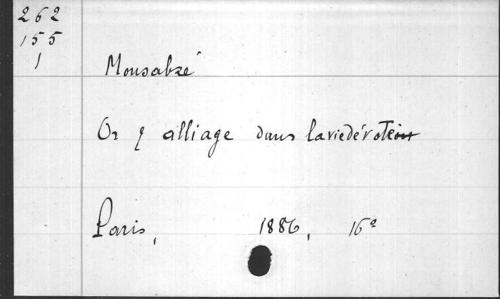 262
155
1
Monsabré
Or & alliage dans la vie dévote
Paris, 1886, 16º